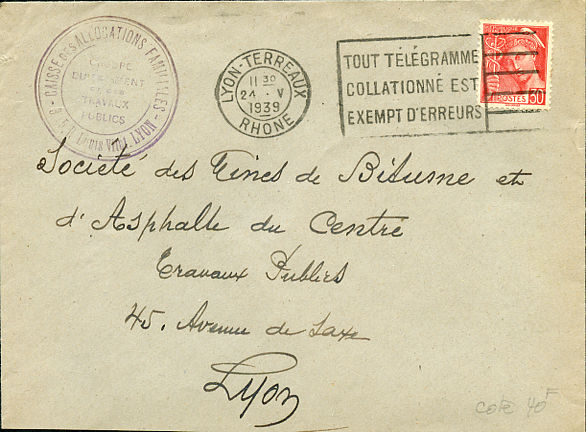 CAISSE DES ALLOCATIONS FAMILIALES
GROUPE
DU BATIMENT
ET DES
TRAVAUX
PUBLICS
LYON
LYON-TERREAUX
11 30
24 - V
1939
RHONE
TOUT TÉLÉGRAMME
COLLATIONNÉ EST
EXEMPT D'ERREURS
POSTES 50
Société des Mines de Bitume et
d'Asphalte du Centre
Travaux Publics
45. Avenue de Saxe
Lyon
COTE 40F